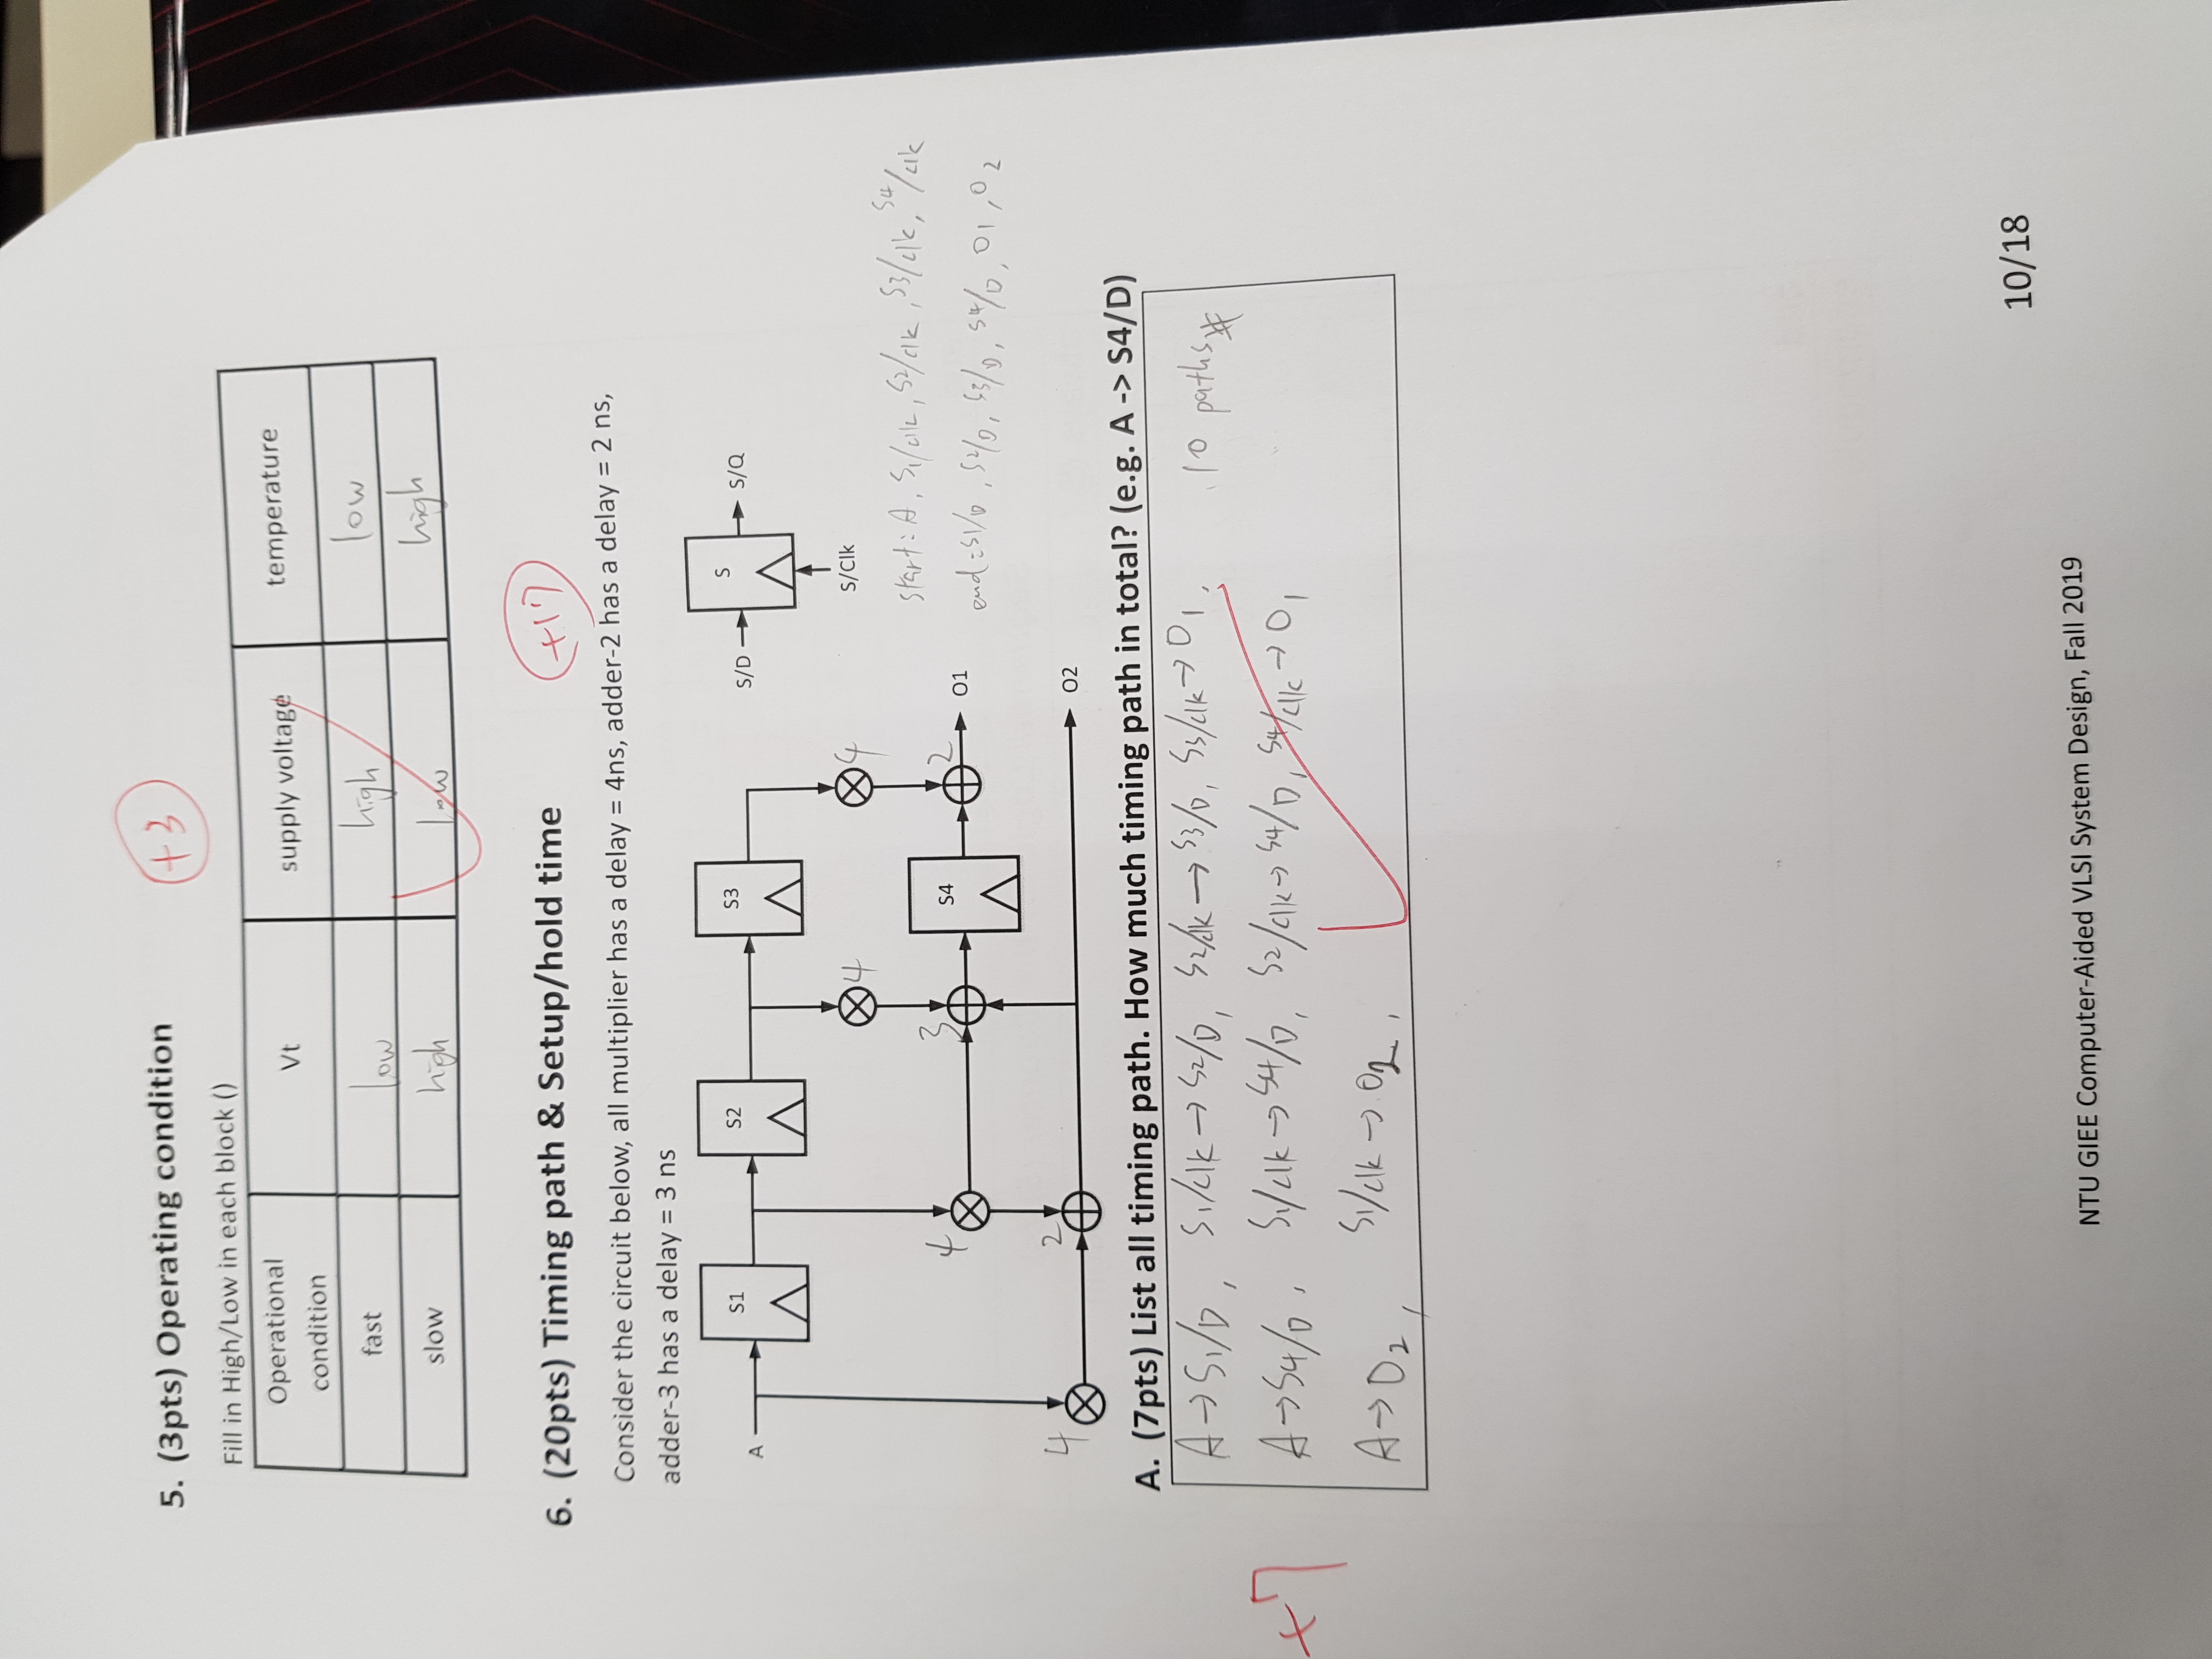 5. (3pts) Operating condition
+3
Fill in High/Low in each block ()
Operational condition Vt supply voltage temperature
fast low high low
slow high low high
6. (20pts) Timing path & Setup/hold time
+17
Consider the circuit below, all multiplier has a delay = 4ns, adder-2 has a delay = 2 ns,
adder-3 has a delay = 3 ns
A S1 S2 S3 S/D S S/Q
S/Clk
4 4
start: A, S1/clk, S2/clk, S3/clk, S4/clk
4 3 S4 2 O1
end: S1/D, S2/D, S3/D, S4/D, O1, O2
4 2 O2
A. (7pts) List all timing path. How much timing path in total? (e.g. A -> S4/D)
A→S1/D, S1/clk→S2/D, S2/clk→S3/D, S3/clk→O1, 10 paths#
+7
A→S4/D, S1/clk→S4/D, S2/clk→S4/D, S4/clk→O1
A→O2, S1/clk→O2,
10/18
NTU GIEE Computer-Aided VLSI System Design, Fall 2019